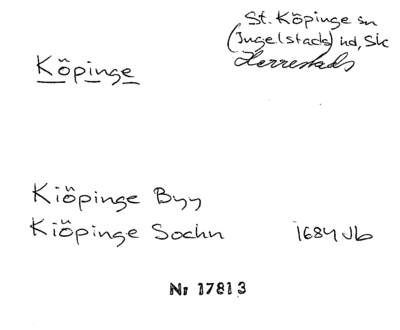 St. Köpinge sn
(Ingelstads) hd, Sk
Herrestads
Köpinge
Kiöpinge Byy
Kiöpinge Sochn 1684 Jb
Nr 17813